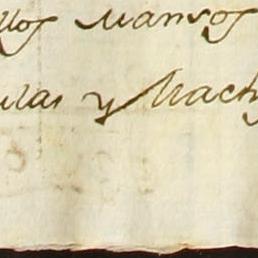 llos Mansos
ulas y Mach